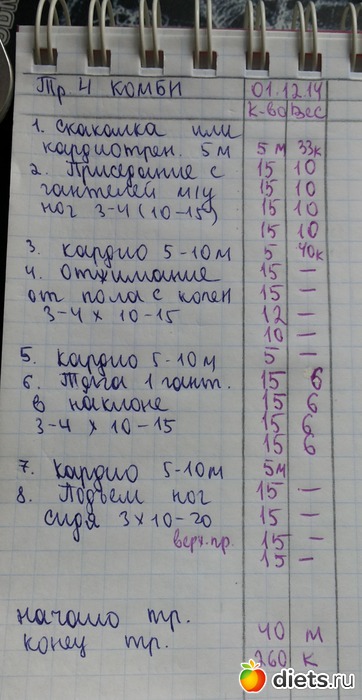 Тр 4 КОМБИ 01.12.14
К-во Вес
1. Скакалка или
кардиотрен. 5м 5 м 33к
2. Приседание с 15 10
гантелей м/у 15 10
ног 3-4 (10-15) 15 10
15 10
3. Кардио 5-10м 5 40к
4. Отжимание 15 —
от пола с колен 15 —
3-4 х 10-15 12 —
10 —
5. Кардио 5-10м 5 —
6. Тяга 1 гант. 15 6
в наклоне 15 6
3-4 х 10-15 15 6
15 6
7. Кардио 5-10м 5м
8. Подъем ног 15 —
сидя 3х10-20 15 —
верх.пр. 15 —
15 —
начало тр.
конец тр. 40 м
260 к
diets.ru